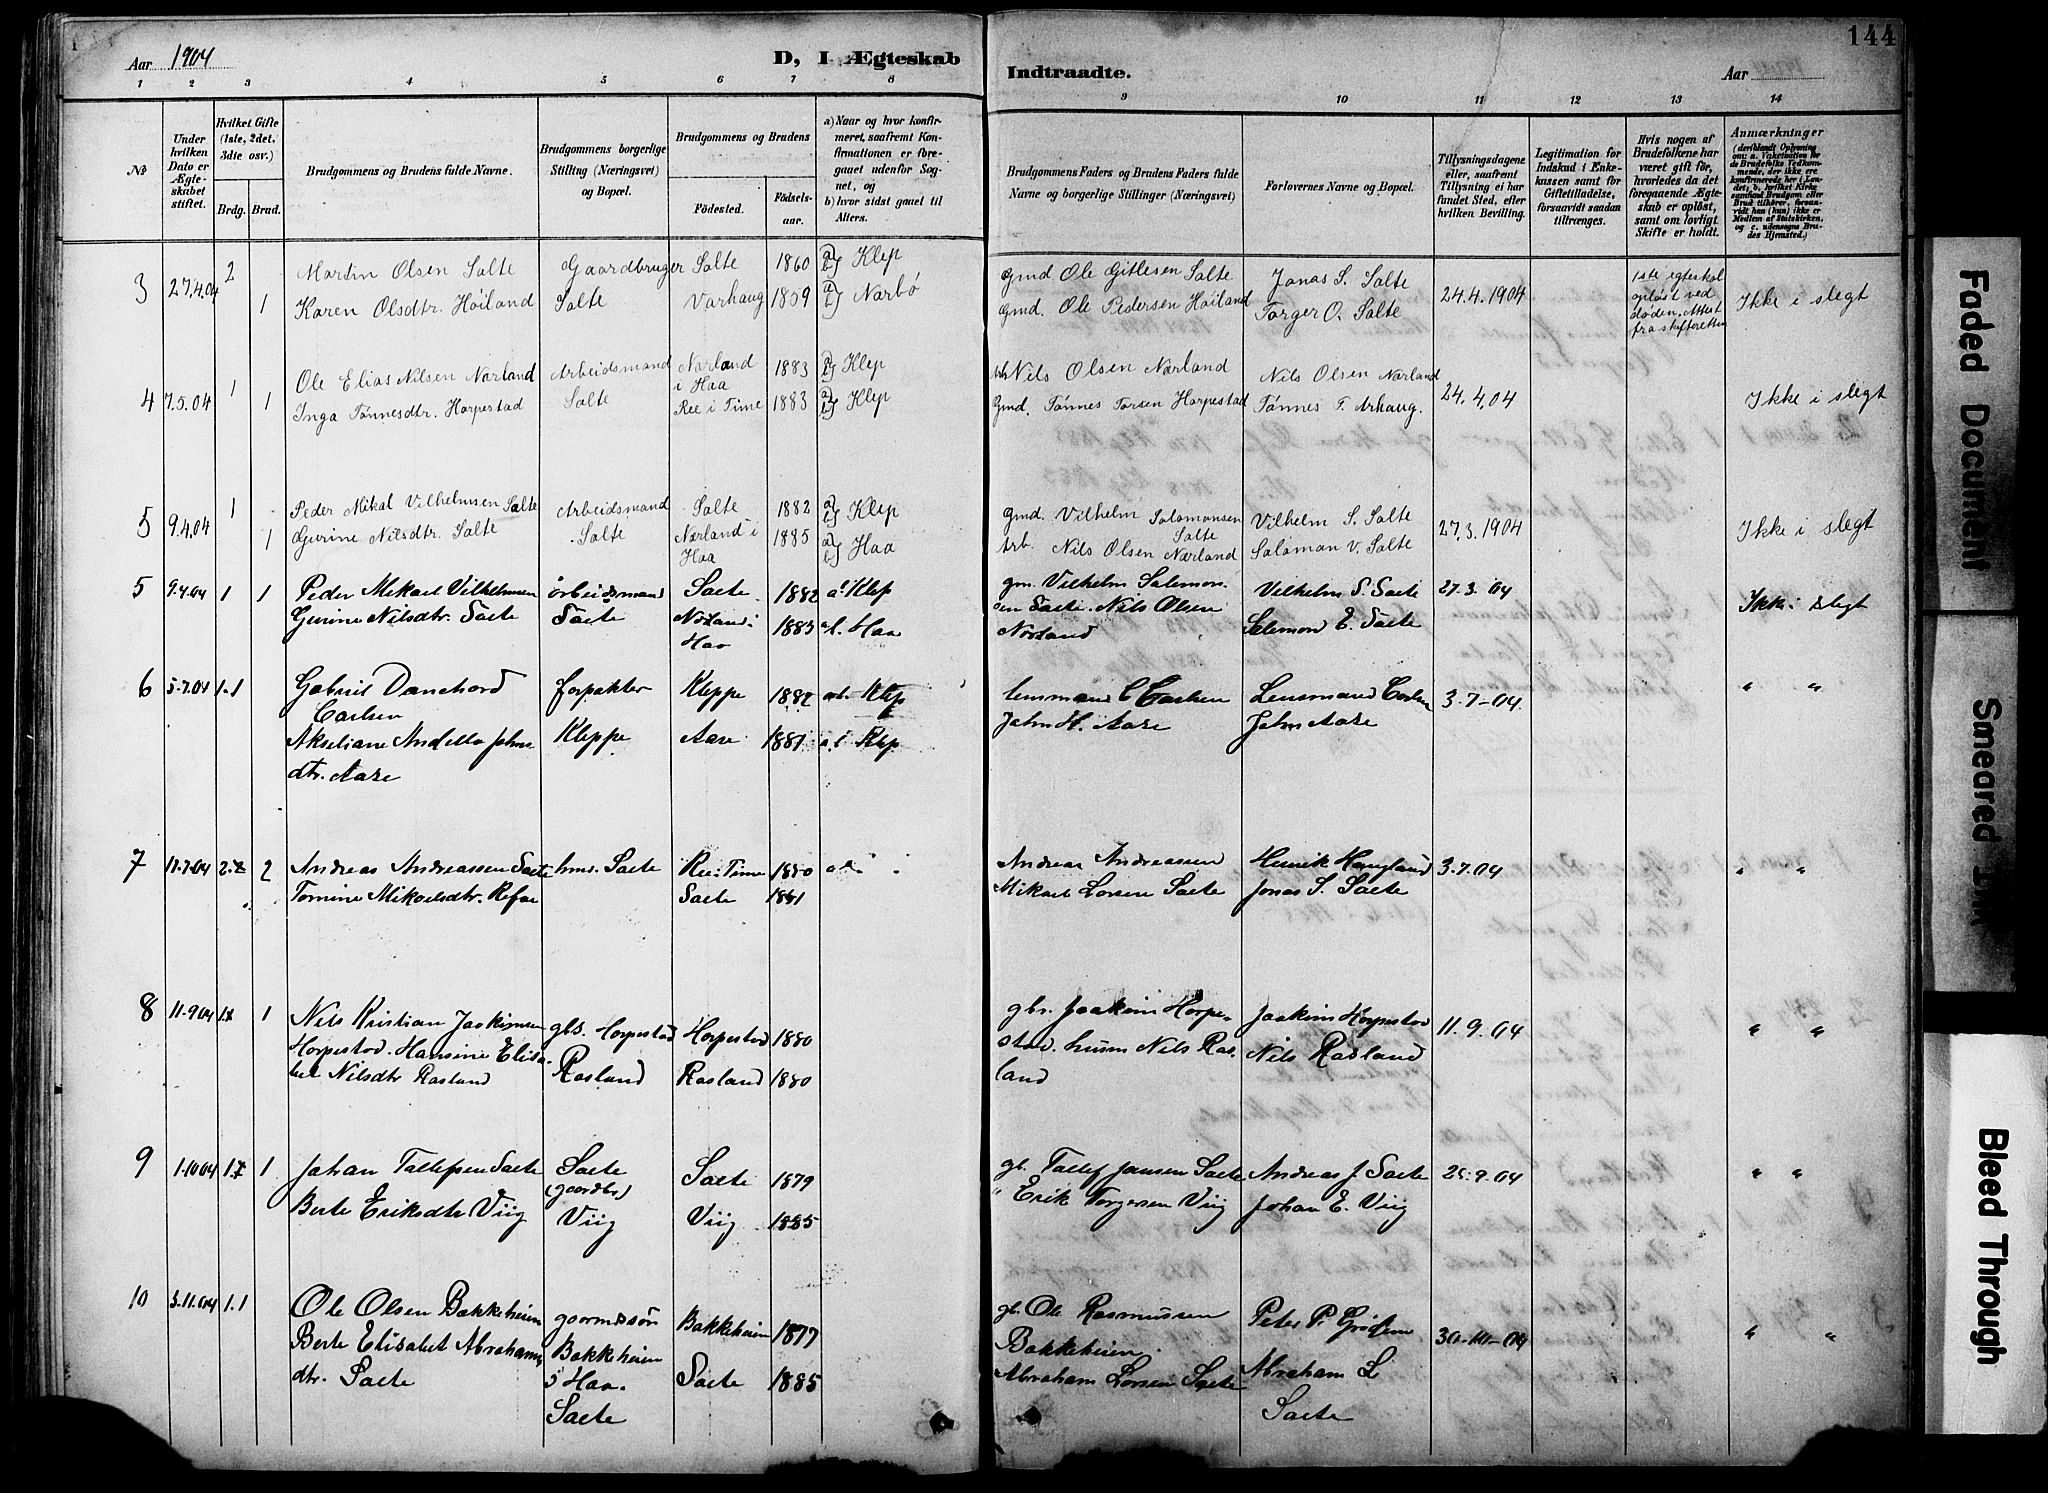 144
Aar 1904
D, I Ægteskab Indtraadte.
Aar
1 2 3 4 5 6 7 8 9 10 11 12 13 14
№
Under hvilken Dato er Ægteskabet stiftet.
Hvilket Gifte (1ste, 2det, 3die osv.)
Brdg. Brud.
Brudgommens og Brudens fulde Navne.
Brudgommens borgerlige Stilling (Næringsvei) og Bopæl.
Brudgommens og Brudens
Fødested. Fødselsaar.
a) Naar og hvor konfirmeret, saafremt Konfirmationen er foregaaet udenfor Sognet, og
b) hvor sidst gaaet til Alters.
Brudgommens Faders og Brudens Faders fulde Navne og borgerlige Stillinger (Næringsvei)
Forlovernes Navne og Bopæl.
Tillysningsdagene eller, saafremt Tillysning ei har fundet Sted, efter hvilken Bevilling.
Legitimation for Indskud i Enkekassen samt for Giftetilladelse, forsaavidt saadan tiltrænges.
Hvis nogen af Brudefolkene har været gift før, hvorledes da det foregaaende Ægteskab er opløst, samt om lovligt Skifte er holdt.
Anmærkninger (deriblandt Oplysning om: a. Vaksination for de Brudefolks Vedkommende, der ikke ere konfirmerede her i Landet; b. hvilket Kirkesamfund Brudgom eller Brud tilhører, forsaavidt han (hun) ikke er Medlem af Statskirken, og c. udensogns Brudes Hjemsted.)
3 27.4.04 2 Martin Olsen Salte Gaardbruger Salte 1860 a) b) Klep Gmd Ole Gitlesen Salte Jonas S. Salte 24.4.1904 1ste egteskab opløst ved døden. Attest fra skifteretten Ikke i slegt
1 Karen Olsdtr. Høiland Salte Varhaug 1859 a) b) Narbø Gmd. Ole Pedersen Høiland Torger O. Salte
4 7.5.04 1 Ole Elias Nilsen Nærland Arbeidsmand Nærland i Haa 1883 a) b) Klep Arb Nils Olsen Nærland Nils Olsen Nærland 24.4.04 Ikke i slegt
1 Inga Tønnesdtr. Horpestad Salte Ree i Time 1883 a) b) Klep Gmd. Tønnes Torsen Horpestad Tønnes T. Arhaug.
5 9.4.04 1 Peder Mikal Vilhelmsen Salte Arbeidsmand Salte 1882 a) b) Klep Gmd. Vilhelm Salomonsen Salte Vilhelm S. Salte 27.3.1904 Ikke i slegt
1 Gurine Nilsdtr. Salte Salte Nærland i Haa 1885 a) b) Haa Arb. Nils Olsen Nærland Salomon V. Salte
5 9.4.04 1 1 Peder Mikael Vilhelmsen Arbeidsmand Saete 1882 Klep gm. Vilhelm Salemonsen Saete. Vilhelm S. Saete 27.3.04 Ikke i slegt
Gurine Nilsdtr. Saete Saete Nörland i Haa 1883 Haa Nils Olsen Nörland Salemon E. Saete
6 5-7.04 1-1 Gabriel Danchord Carlsen forpakter Kleppe 1882 Klep lensmand C Carlsen Lensmand Carlsen 3-7-04. " "
Akseliane Andella Johnsdtr. Aase Kleppe Aase 1881 Klep John H. Aase John Aase
7 11.7.04 2 2 Andreas Andreassen Saete hms. Saete Ree i Time 1880 Andreas Andreassen Henrik Haugland 3.7.04 " "
Tomine Mikaelsdtr. Refve Saete 1881 Mikael Lorsen Saete Jonas S. Saete
8 11.9.04 1 1 Nils Kristian Joakimsen Horpestad. gbr. Horpestad Horpestad 1880 gbr. Joakim Horpestad. Joakim Horpestad 11.9.04 " "
Hansine Elisabet Nilsdtr Rosland Rosland Rosland 1880 husm Nils Rosland Nils Rosland
9 1.10.04 1 1 Johan Tollefsen Saete Saete (gaardbr) Saete 1879 gb. Tollef Jansen Saete Andreas J. Saete 25.9.04 " "
Berte Eriksdtr Viig Viig Viig 1885 " Erik Torgersen Viig Johan E. Viig
10 3.11.04 1.1 Ole Olsen Bakkeheien gaardmssön Bakkeheien i Haa. Bakkeheien 1877 gb. Ole Rasmussen Bakkeheien. Peter P. 30-10-04 " "
Berte Elisabet Abrahamsdtr. Saete Saete Saete 1885 Abraham Lorsen Saete Abraham L Saete
Faded Document
Smeared Ink
Bleed Through